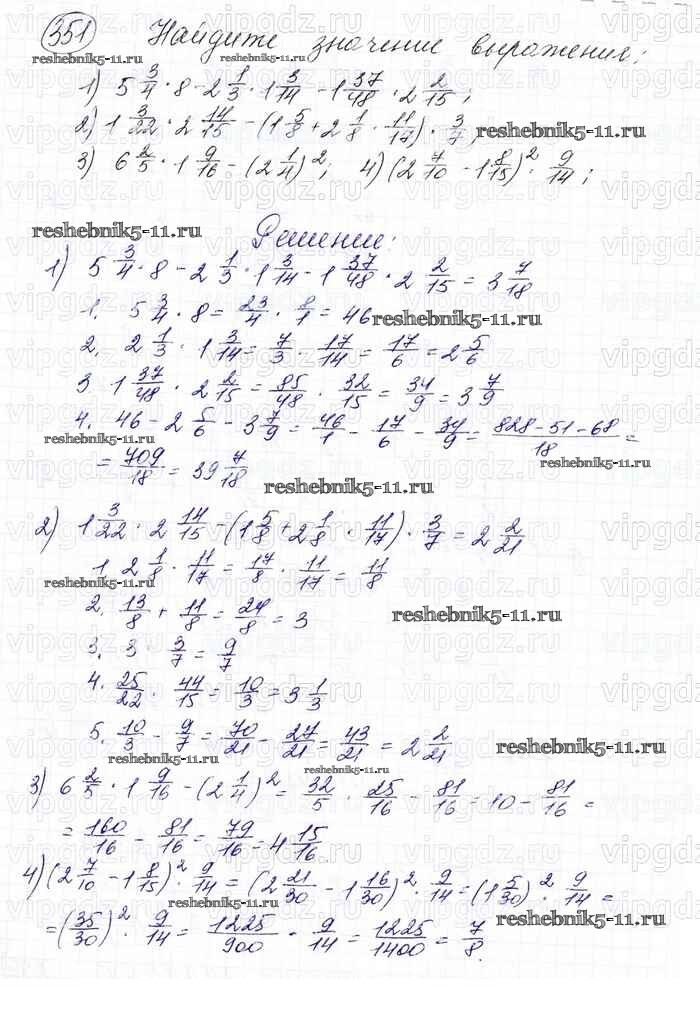 351 Найдите значение выражения:
1) 5 3/4 · 8 - 2 1/3 · 1 3/14 - 1 37/48 · 2 2/15;
2) 1 3/22 · 2 14/15 - (1 5/8 + 2 1/8 · 11/17) · 3/7;
3) 6 2/5 · 1 9/16 - (2 1/4)²; 4) (2 7/10 - 1 8/15)² · 9/14;
reshebnik5-11.ru
Решение:
1) 5 3/4 · 8 - 2 1/3 · 1 3/14 - 1 37/48 · 2 2/15 = 3 7/18
1. 5 3/4 · 8 = 23/4 · 8/1 = 46
2. 2 1/3 · 1 3/14 = 7/3 · 17/14 = 17/6 = 2 5/6
3 1 37/48 · 2 2/15 = 85/48 · 32/15 = 34/9 = 3 7/9
4. 46 - 2 5/6 - 3 7/9 = 46/1 - 17/6 - 34/9 = (828 - 51 - 68)/18 =
= 709/18 = 39 7/18
2) 1 3/22 · 2 14/15 - (1 5/8 + 2 1/8 · 11/17) · 3/7 = 2 2/21
1. 2 1/8 · 11/17 = 17/8 · 11/17 = 11/8
2. 13/8 + 11/8 = 24/8 = 3
3. 3 · 3/7 = 9/7
4. 25/22 · 44/15 = 10/3 = 3 1/3
5. 10/3 - 9/7 = 70/21 - 27/21 = 43/21 = 2 2/21
3) 6 2/5 · 1 9/16 - (2 1/4)² = 32/5 · 25/16 - 81/16 = 10 - 81/16 =
= 160/16 - 81/16 = 79/16 = 4 15/16
4) (2 7/10 - 1 8/15)² · 9/14 = (2 21/30 - 1 16/30)² · 9/14 = (1 5/30)² · 9/14 =
= (35/30)² · 9/14 = 1225/900 · 9/14 = 1225/1400 = 7/8.